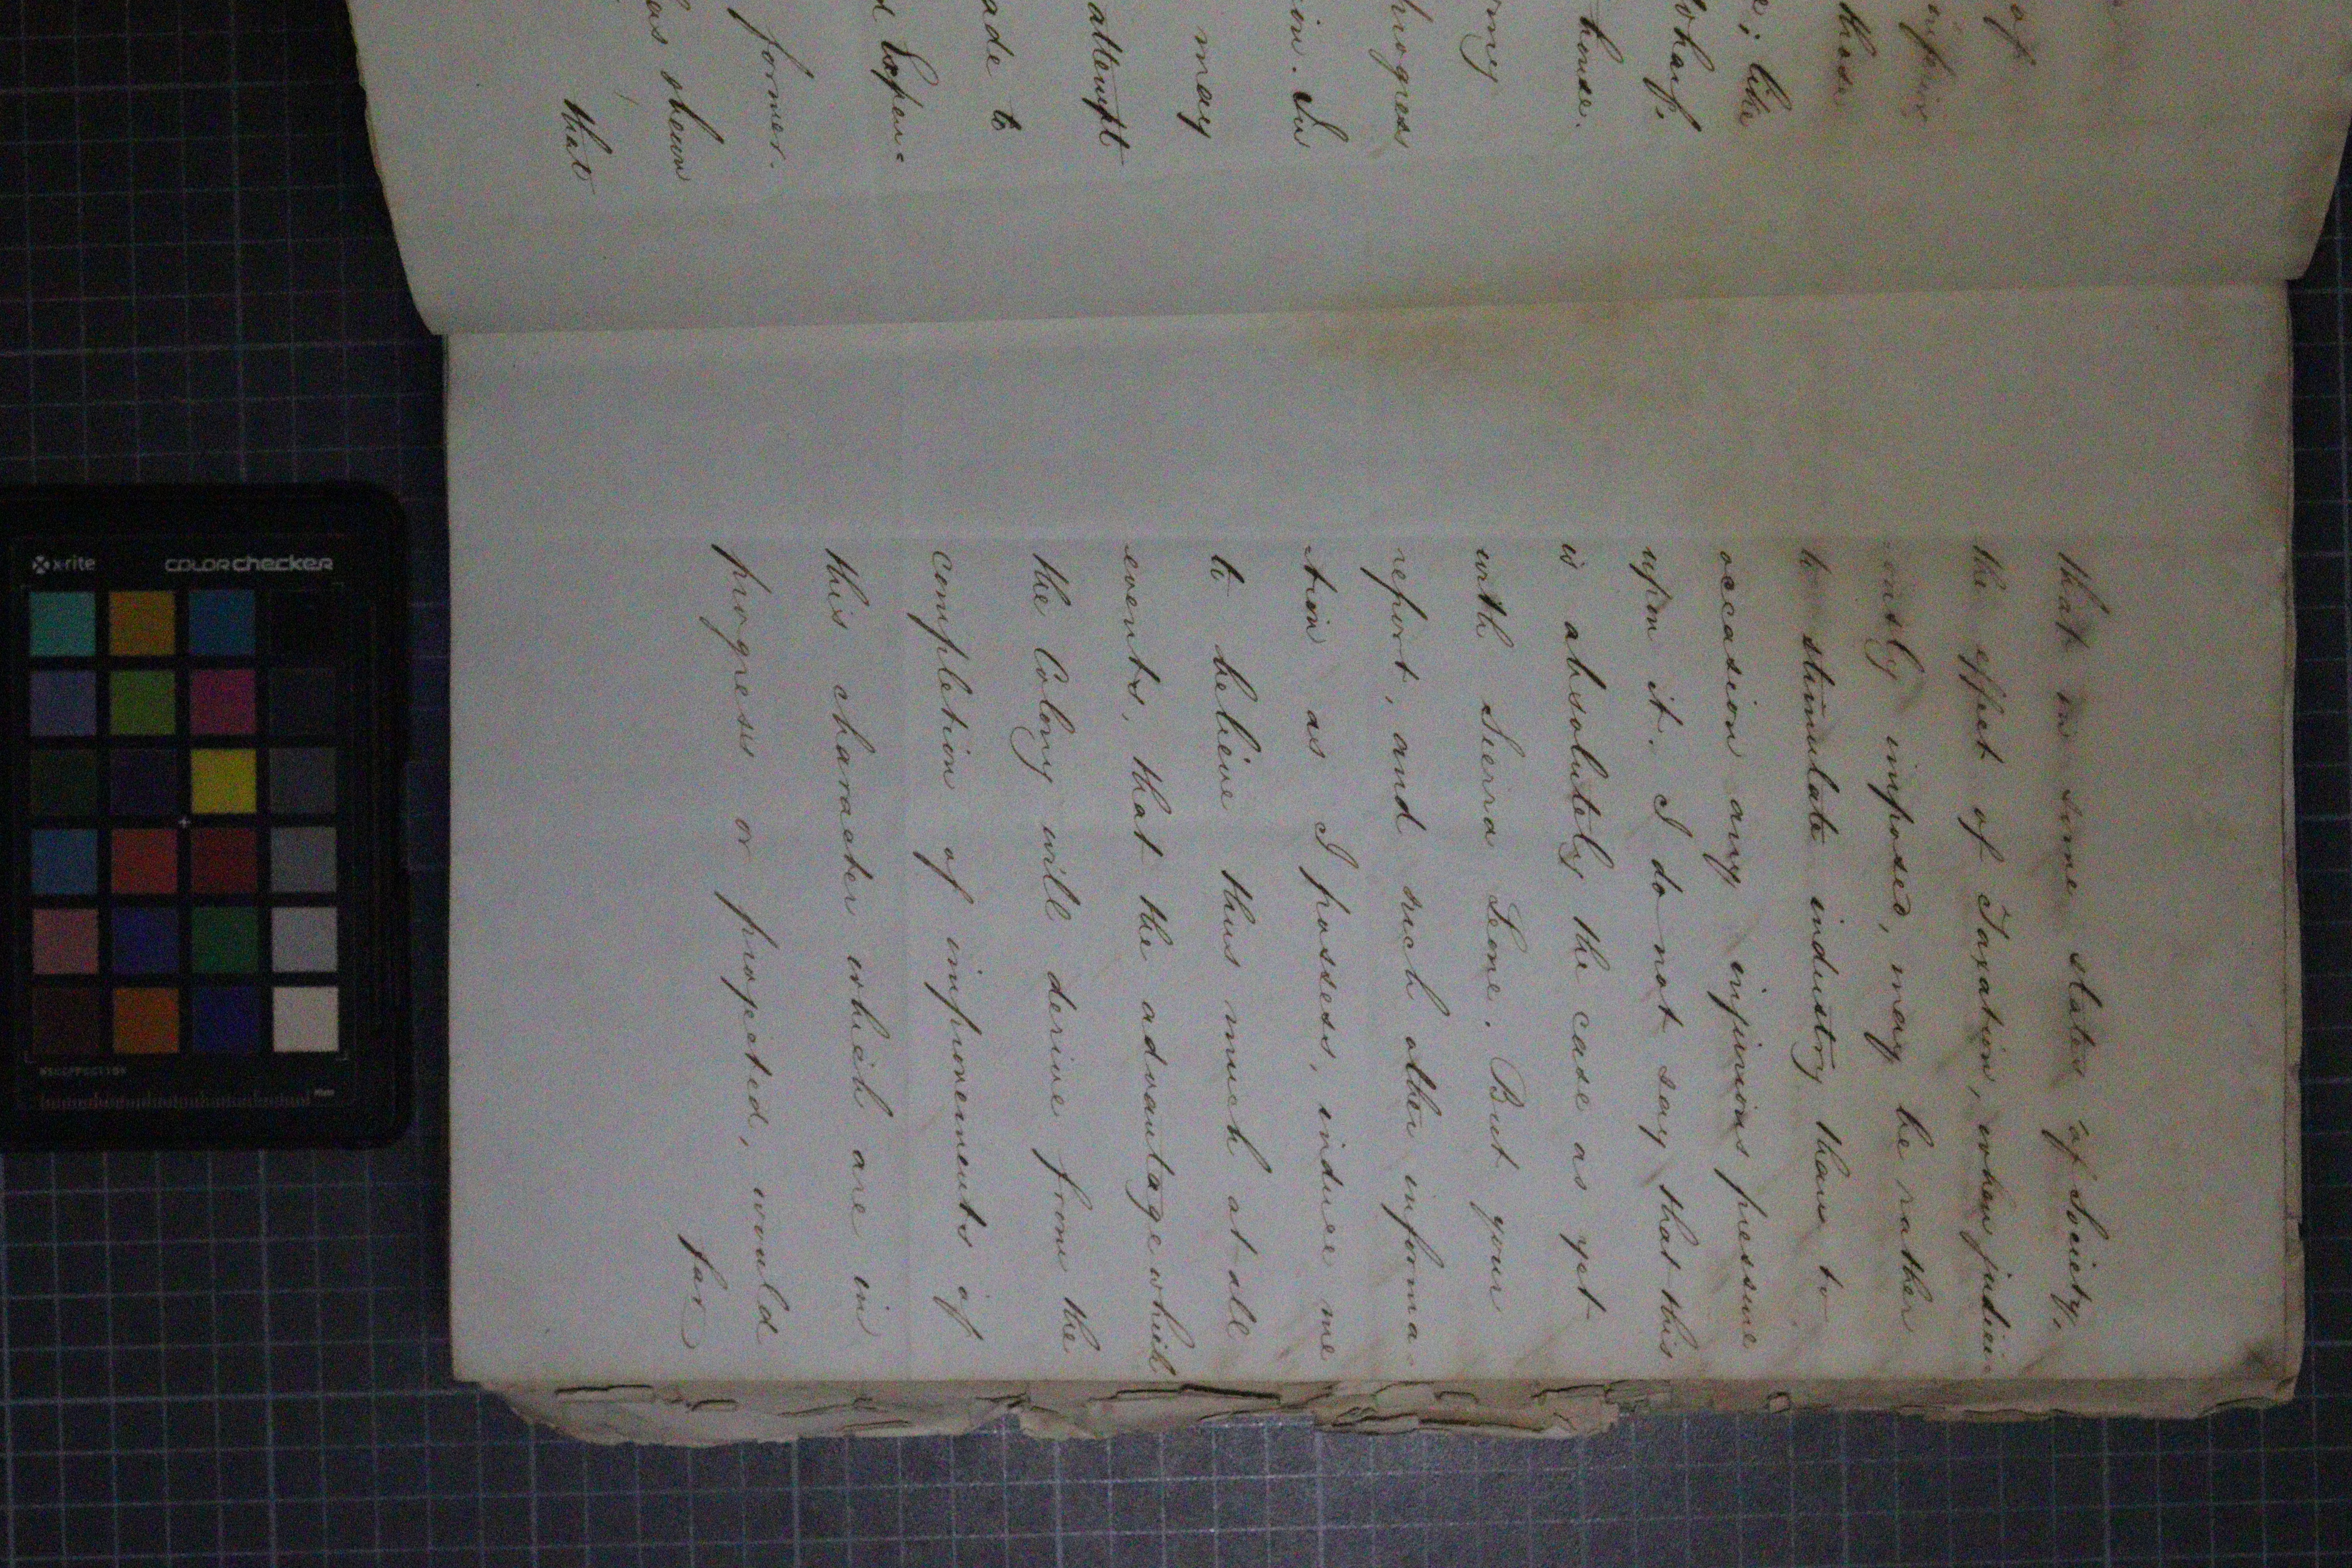 of
those
like
wharf,
house.
progress
in. In
may
attempt
ade to
d Expen-
former.
as shewn
that
that in some states of Society,
the effect of Taxation, when judici-
ously imposed, may be rather
to stimulate industry than to
occasion any injurious pressure
upon it. I do not say that this
is absolutely the case as yet
with Sierra Leone. But your
report, and such other informa-
tion as I possess, induce me
to believe thus much at all
events, that the advantage which
the Colony will derive from the
completion of improvements of
this character which are in
progress or projected, would
far
x-rite
colorchecker